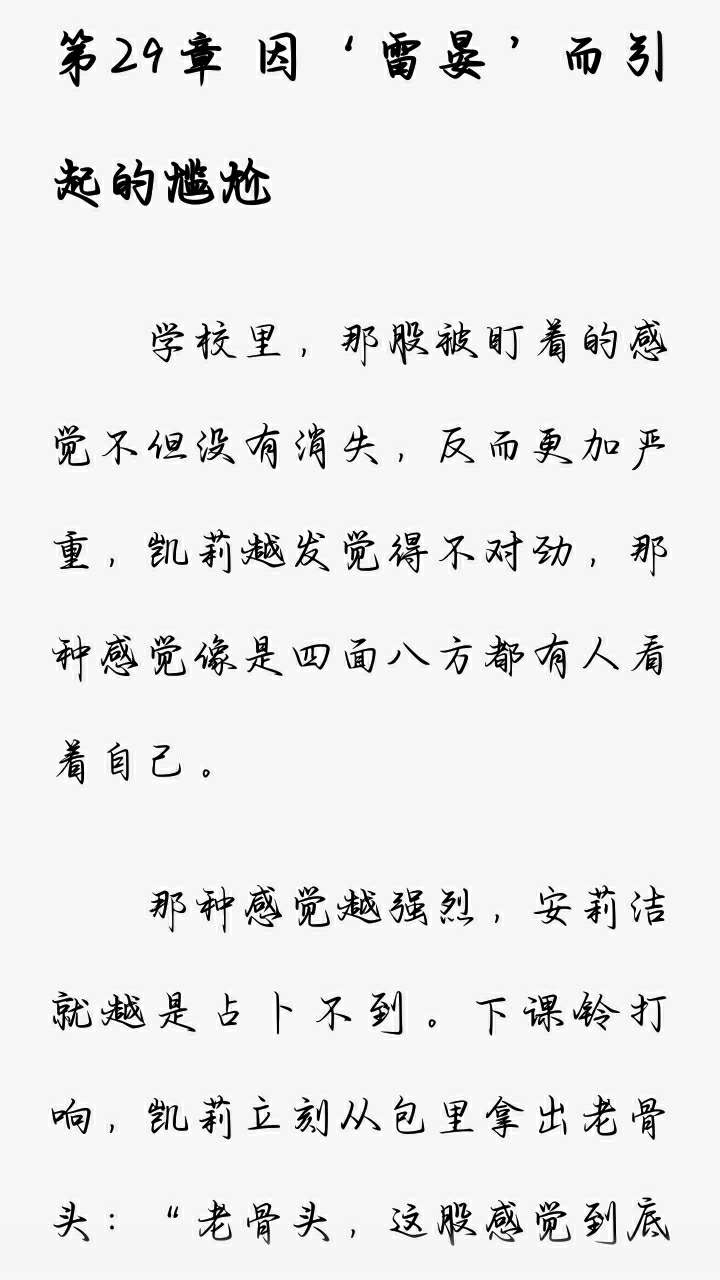 第29章 因‘雷晏’而引
起的尴尬
学校里，那股被盯着的感
觉不但没有消失，反而更加严
重，凯莉越发觉得不对劲，那
种感觉像是四面八方都有人看
着自己。
那种感觉越强烈，安莉洁
就越是占卜不到。下课铃打
响，凯莉立刻从包里拿出老骨
头：“老骨头，这股感觉到底